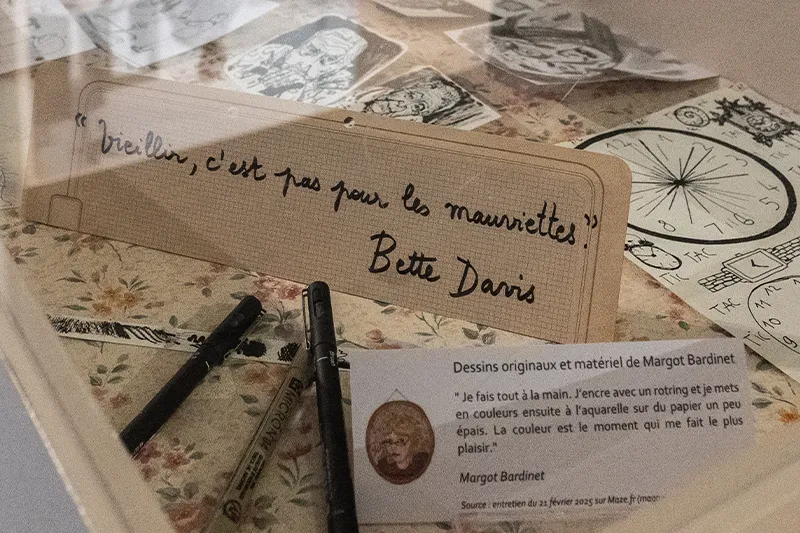 "Vieillir, c'est pas pour les mauviettes."
Bette Davis
TIC
TAC
TAC
TAC
TIC
TAC
12
1
2
3
4
5
6
7
8
MICRON
Dessins originaux et matériel de Margot Bardinet
" Je fais tout à la main. J'encre avec un rotring et je mets
en couleurs ensuite à l'aquarelle sur du papier un peu
épais. La couleur est le moment qui me fait le plus
plaisir."
Margot Bardinet
Source : entretien du 21 février 2025 sur Maze.fr